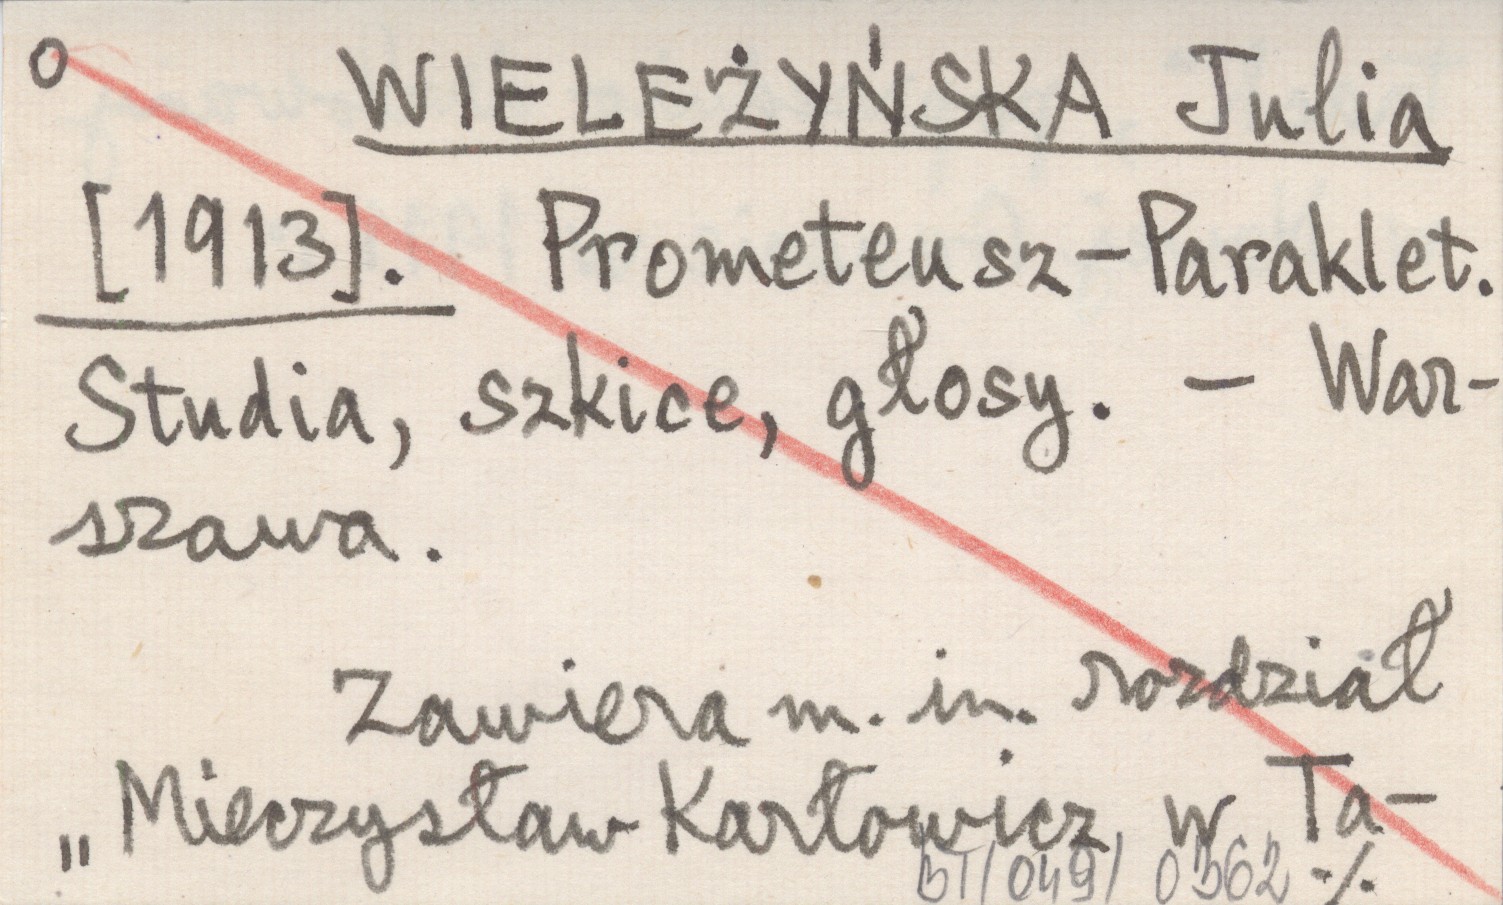 o WIELEŻYŃSKA Julia
[1913]. Prometeusz-Paraklet.
Studia, szkice, głosy. – War-
szawa.
Zawiera m. in. rozdział
„Mieczysław Karłowicz w Ta-
BT/049/ 0362 ·/.